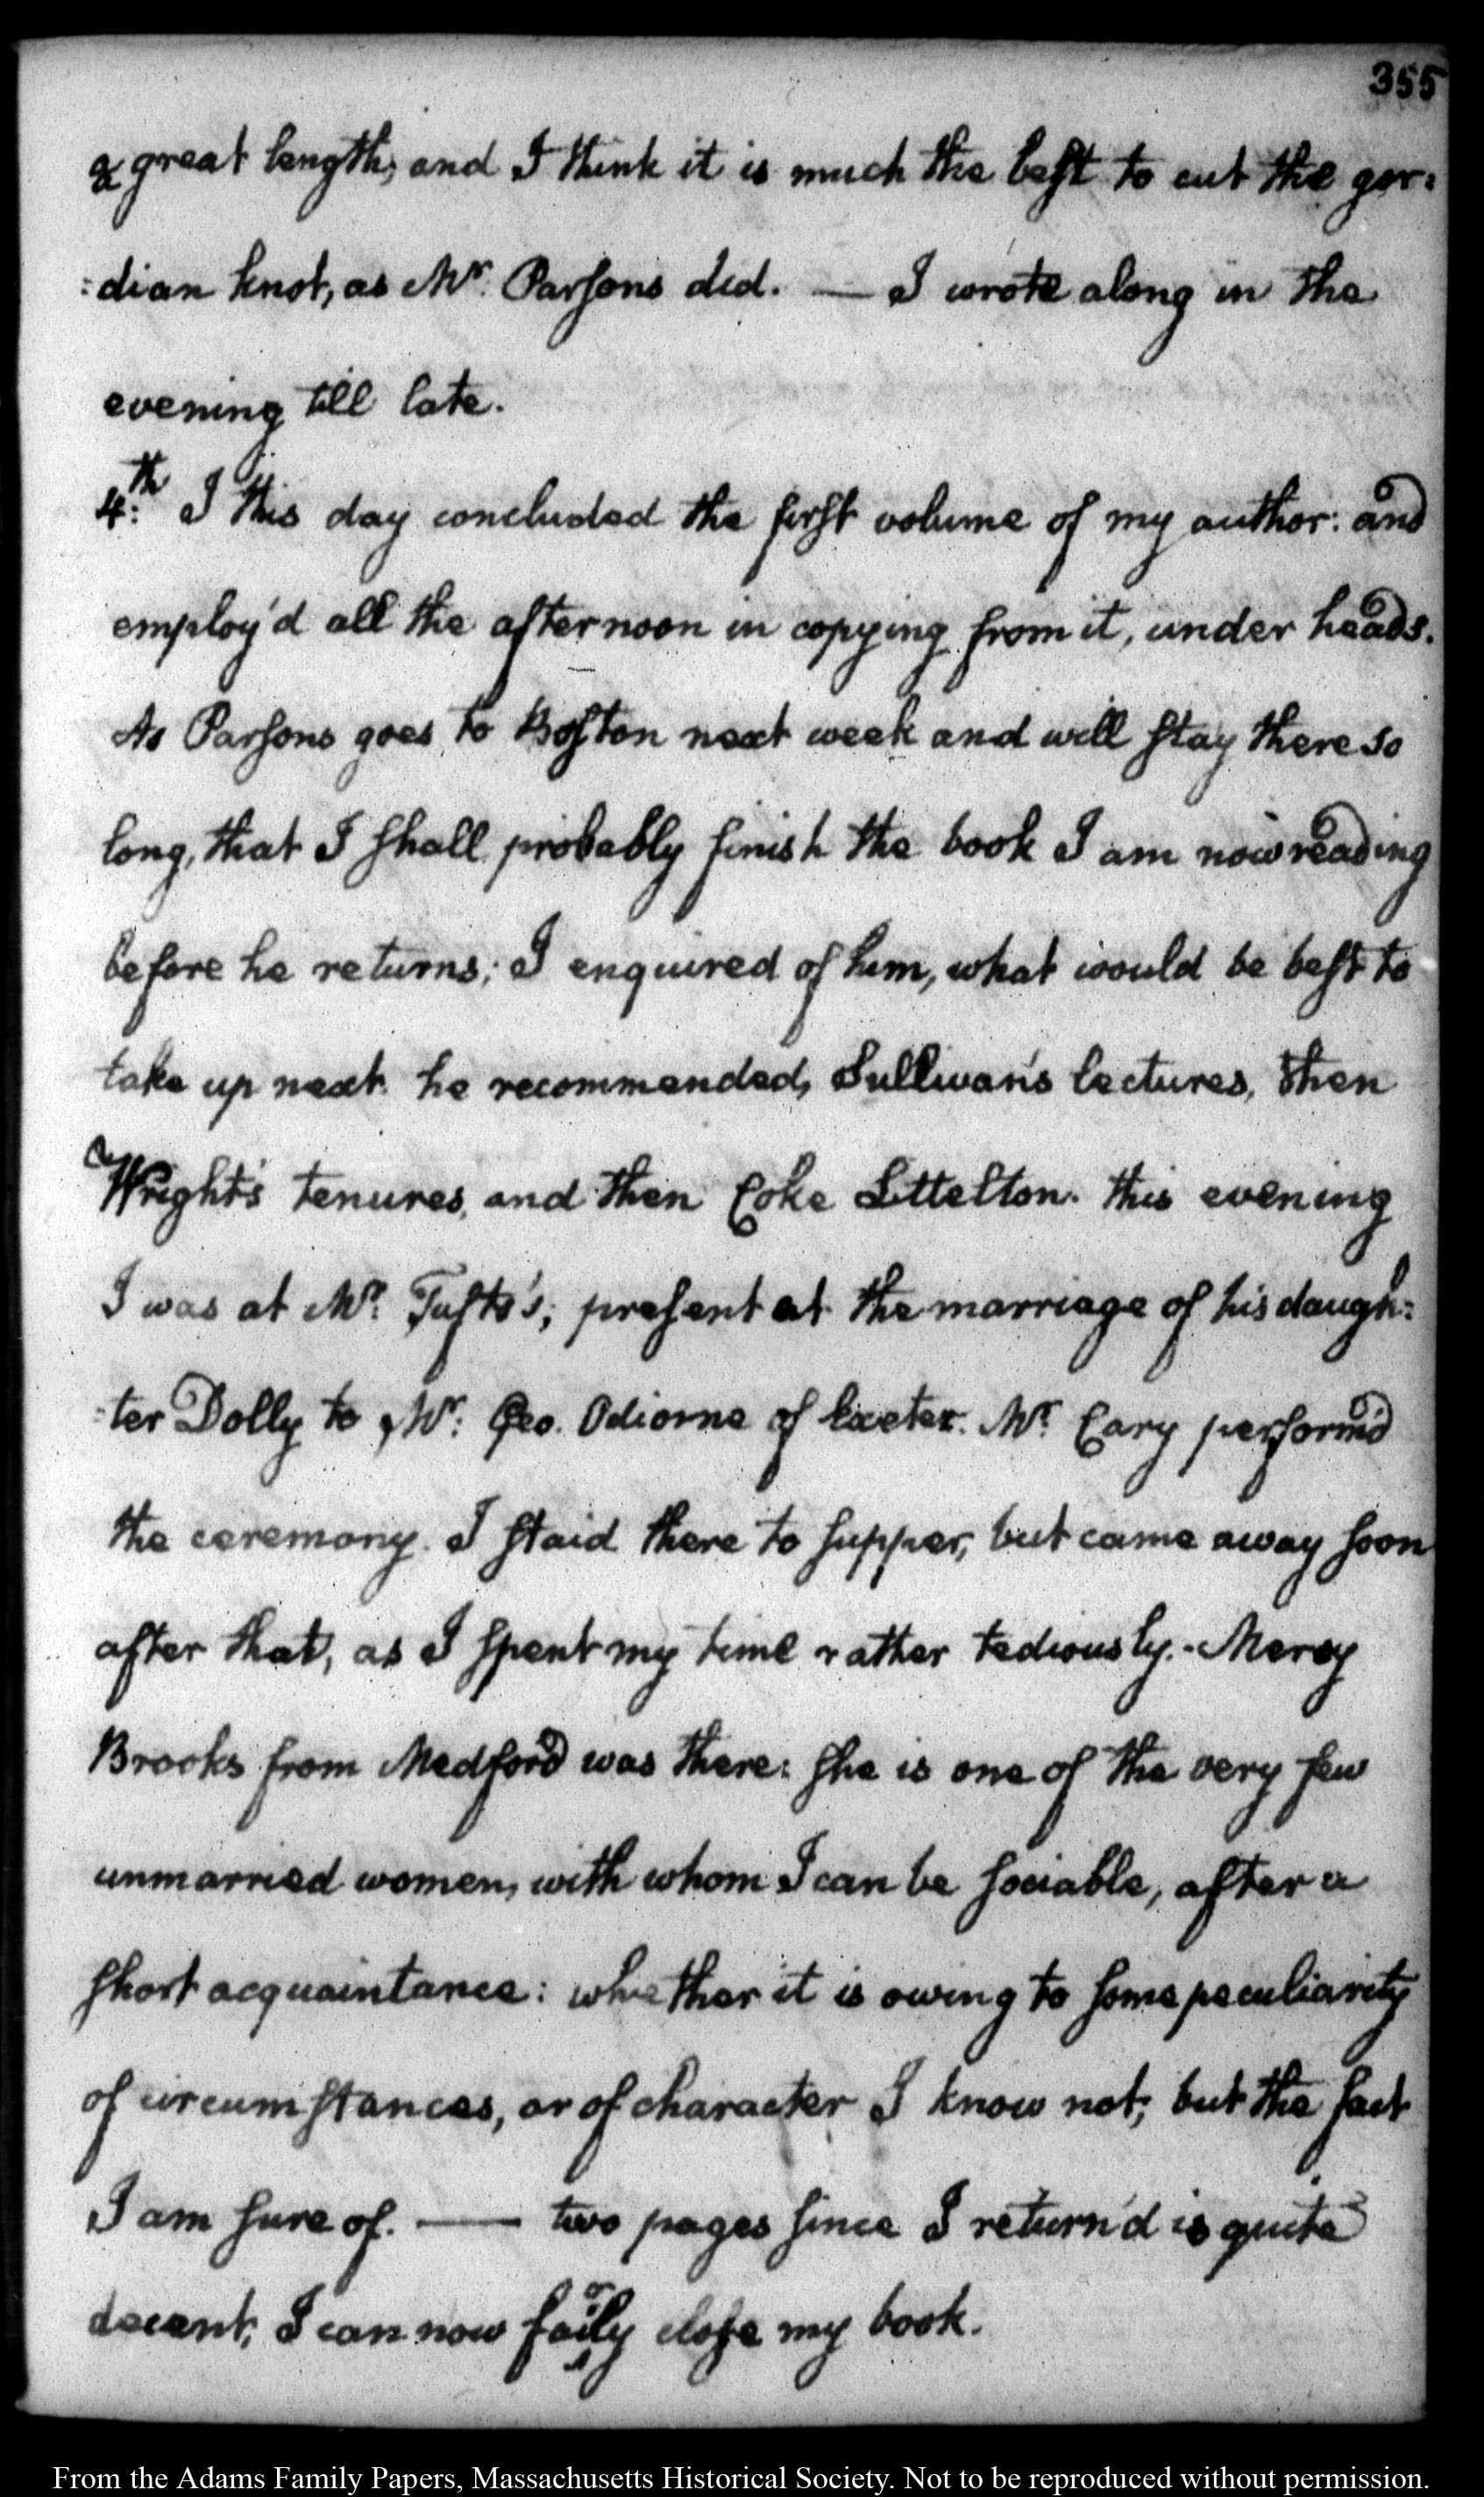 355
a great length, and I think it is much the best to cut the gor:
:dian knot, as Mr. Parsons did. — I wrote along in the
evening till late.
4th: I this day concluded the first volume of my author: and
employ'd all the afternoon in copying from it, under heads.
As Parsons goes to Boston next week and will stay there so
long, that I shall probably finish the book I am now reading
before he returns; I enquired of him, what would be best to
take up next. he recommended, Sullivan's lectures, then
Wright's tenures, and then Coke Littelton. this evening
I was at Mr. Tufts's; present at the marriage of his daugh:
:ter Dolly to Mr: Geo. Odiorne of Exeter. Mr. Cary perform'd
the ceremony. I staid there to supper, but came away soon
after that, as I spent my time rather tediously. - Mercy
Brooks from Medford was there: she is one of the very few
unmarried women, with whom I can be sociable, after a
short acquaintance: whether it is owing to some peculiarity
of circumstances, or of character I know not; but the fact
I am sure of. — two pages since I return'd is quite
decent; I can now fairly close my book.
From the Adams Family Papers, Massachusetts Historical Society. Not to be reproduced without permission.